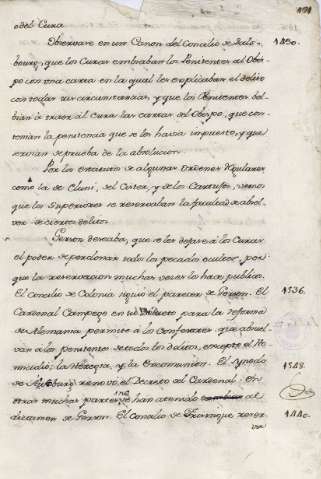 191
del Cura
Observase en un Canon del Concilio de Saltz- 1490.
bourg, que los Curas embiaban los Penitentes al Obis-
po con una carta en la qual les explicaban el delito
con todas sus circunstancias, y que los Penitentes de-
bian à traer al Cura las cartas del Obispo, que con-
tenian la penitencia que se les havia impuesto, y que
servian de prueba de la absolucion
Por los estatutos de algunas Ordenes Regulares
como la de Cluni, del Cister, y de los Cartujos, vemos
que los Superiores se reservaban la facultad de absol-
ver de ciertos delitos
Gerson deseaba, que se les dejase à los Curas
el poder de perdonar todos los pecados ocultos, por-
que la reservacion muchas veces los hace publicos.
El Concilio de Colonia siguiò el parecer de Gerson. El 1536.
Cardenal Campege en su para la reforma
de Alemania permite à los Confesores que absuel-
van à los penitentes de todos los delitos, excepto el Ho-
micidio, la Heregia, y la Excomunion. El Synodo 1548.
de renovò el Decreto del Cardenal. En
otras muchas partes se han atenido al
dictamen de Gerson. El Concilio de reser- 1440.
va